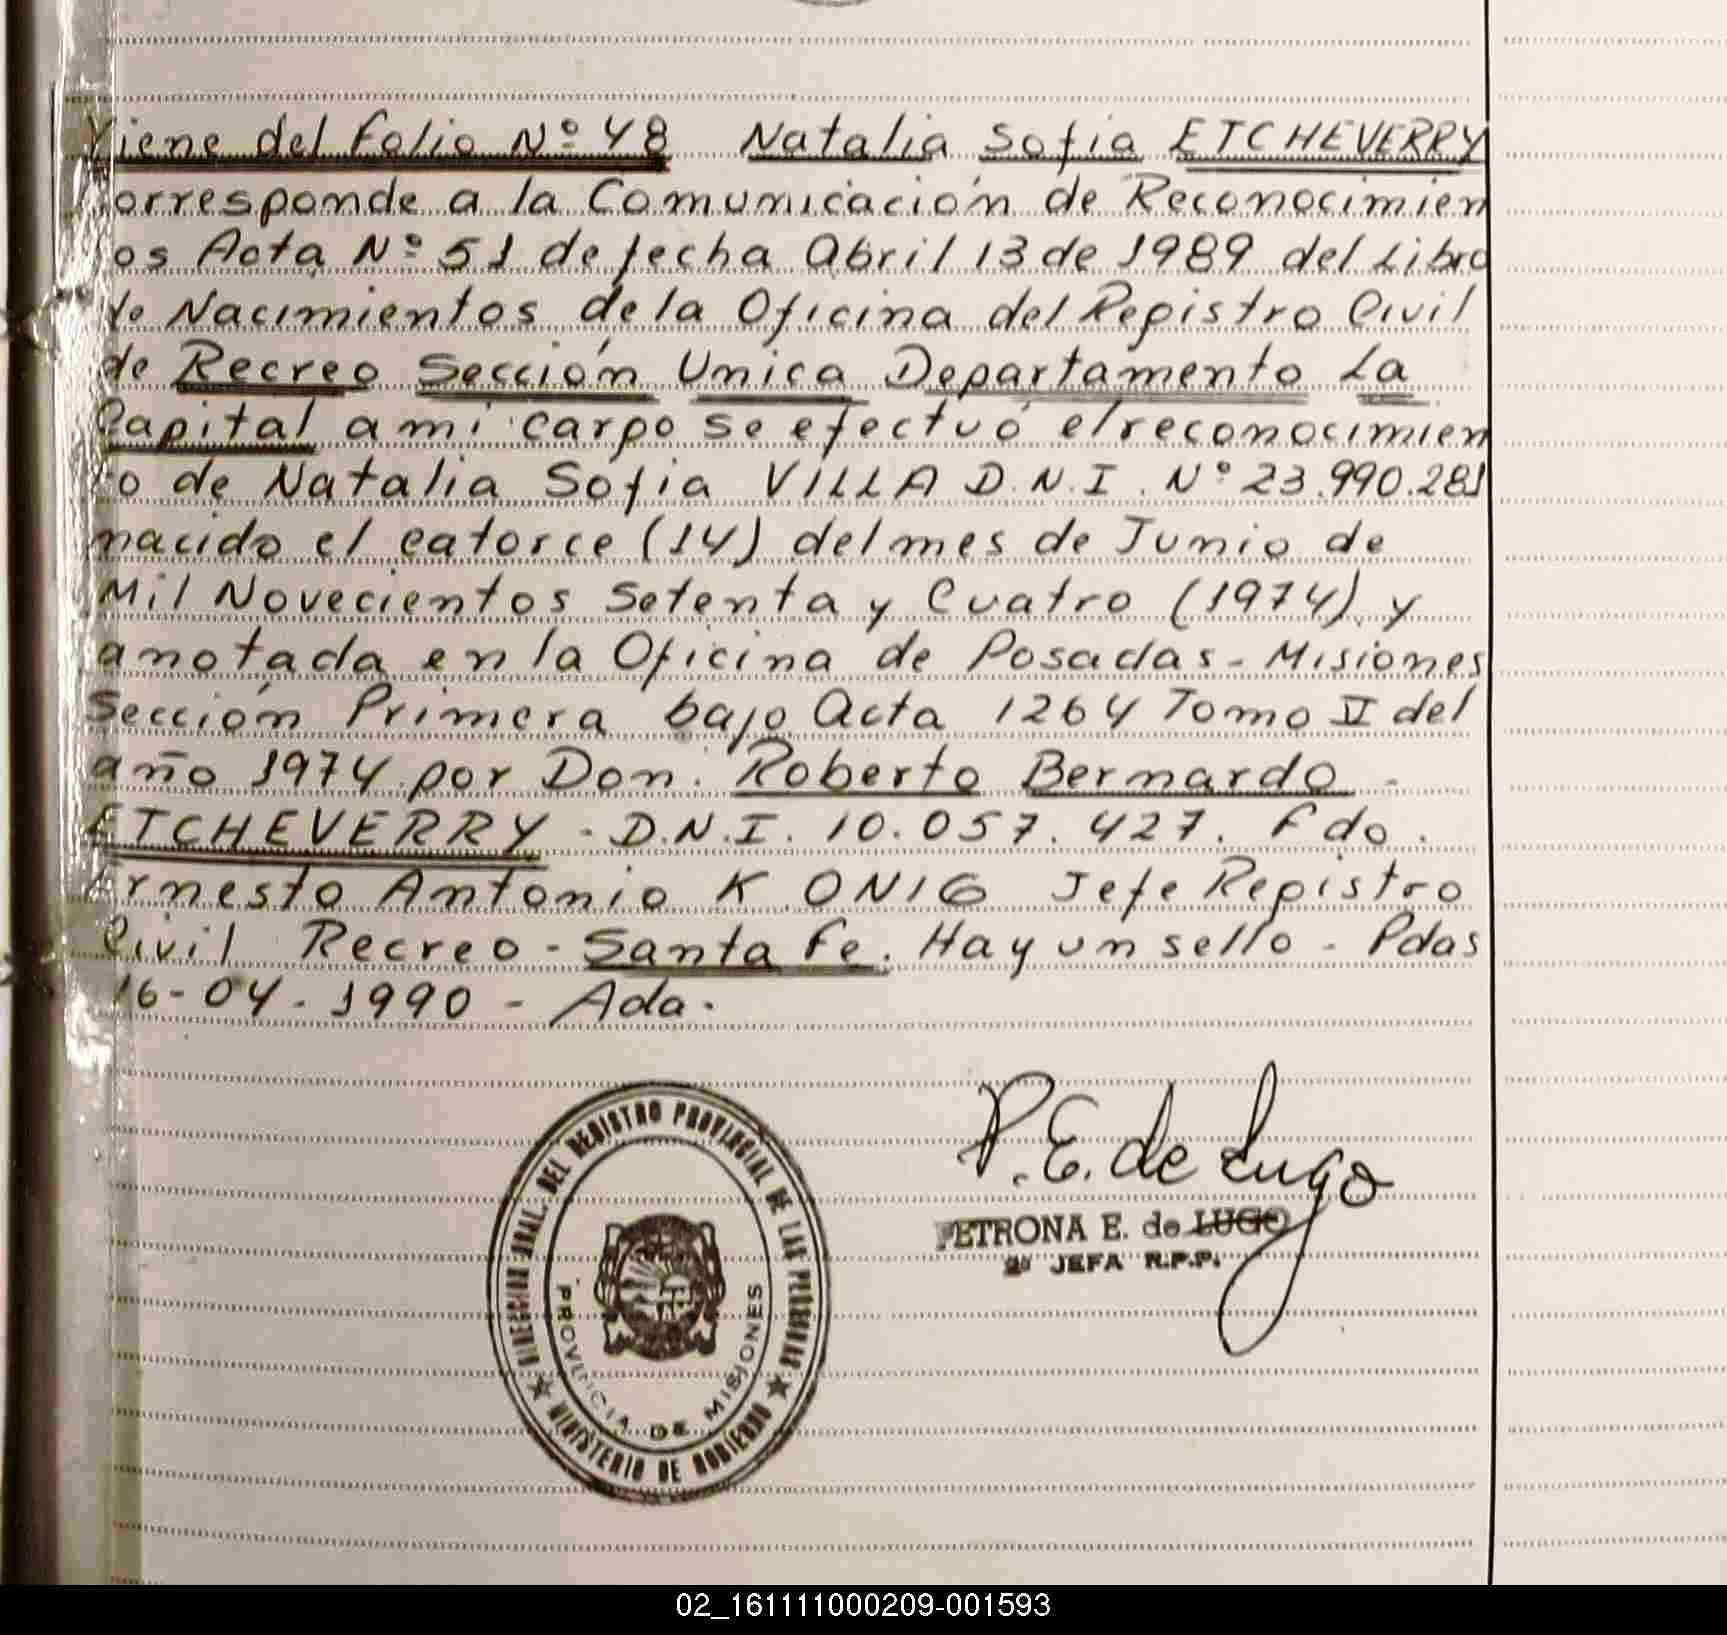 Viene del Folio Nº 48 Natalia Sofia ETCHEVERRY
Corresponde a la Comunicación de Reconocimien
tos Acta Nº 51 de fecha Abril 13 de 1989 del Libro
de Nacimientos de la Oficina del Registro Civil
de Recreo Sección Unica Departamento La
Capital a mi cargo se efectuó el reconocimien
to de Natalia Sofia VILLA D.N.I. Nº 23.990.281
nacido el catorce (14) del mes de Junio de
Mil Novecientos Setenta y Cuatro (1974) y
anotada en la Oficina de Posadas - Misiones
Sección Primera bajo Acta 1264 Tomo V del
año 1974 por Don. Roberto Bernardo -
ETCHEVERRY - D.N.I. 10.057.427. Fdo.
Ernesto Antonio KONIG Jefe Registro
Civil Recreo - Santa Fe. Hay un sello - Pdas
16-04-1990 - Ada.
P. E. de Lugo
PETRONA E. de LUGO
2ª JEFA R.P.P.
DIRECCION GRAL. DEL REGISTRO PROVINCIAL DE LAS PERSONAS
PROVINCIA DE MISIONES
MINISTERIO DE GOBIERNO
02_161111000209-001593